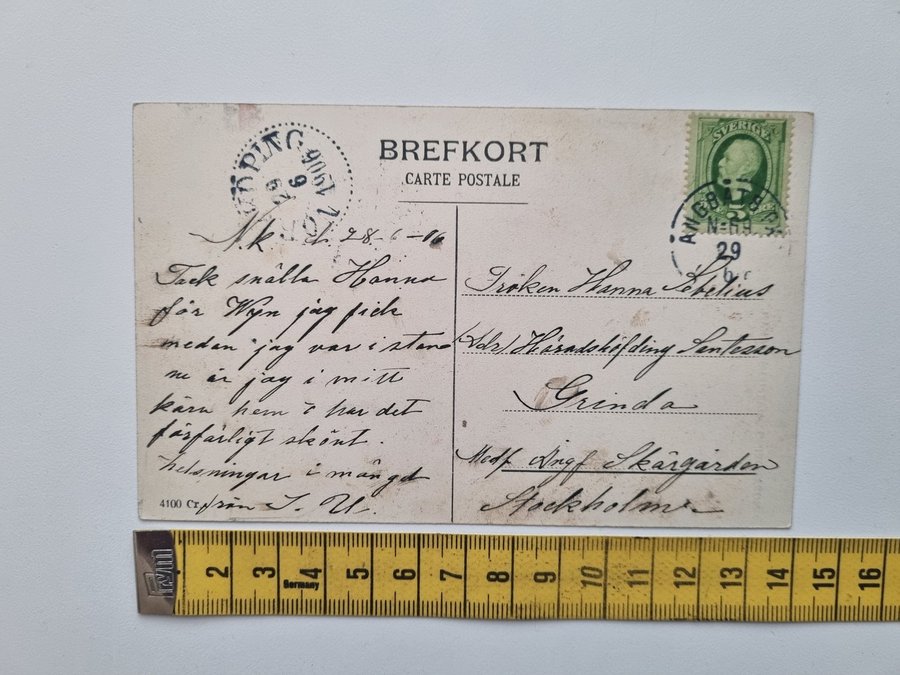 BREFKORT
CARTE POSTALE
SVERIGE
5
ÅNGBÅTS
29
6
KÖPING
1906
9
29
28-6-06
Tack snälla Hanna
för Wyn jag fick
medan jag var i stan
nu är jag i mitt
kära hem o har det
förfärligt skönt.
helsningar i mängd
från S. U.
4100 Cr.
Fröken Hanna Sebelius
Adr) Häradshöfding Sentesson
Grinda
Medf Ångf Skärgården
Stockholm
2 3 4 5 6 7 8 9 10 11 12 13 14 15 16
Germany